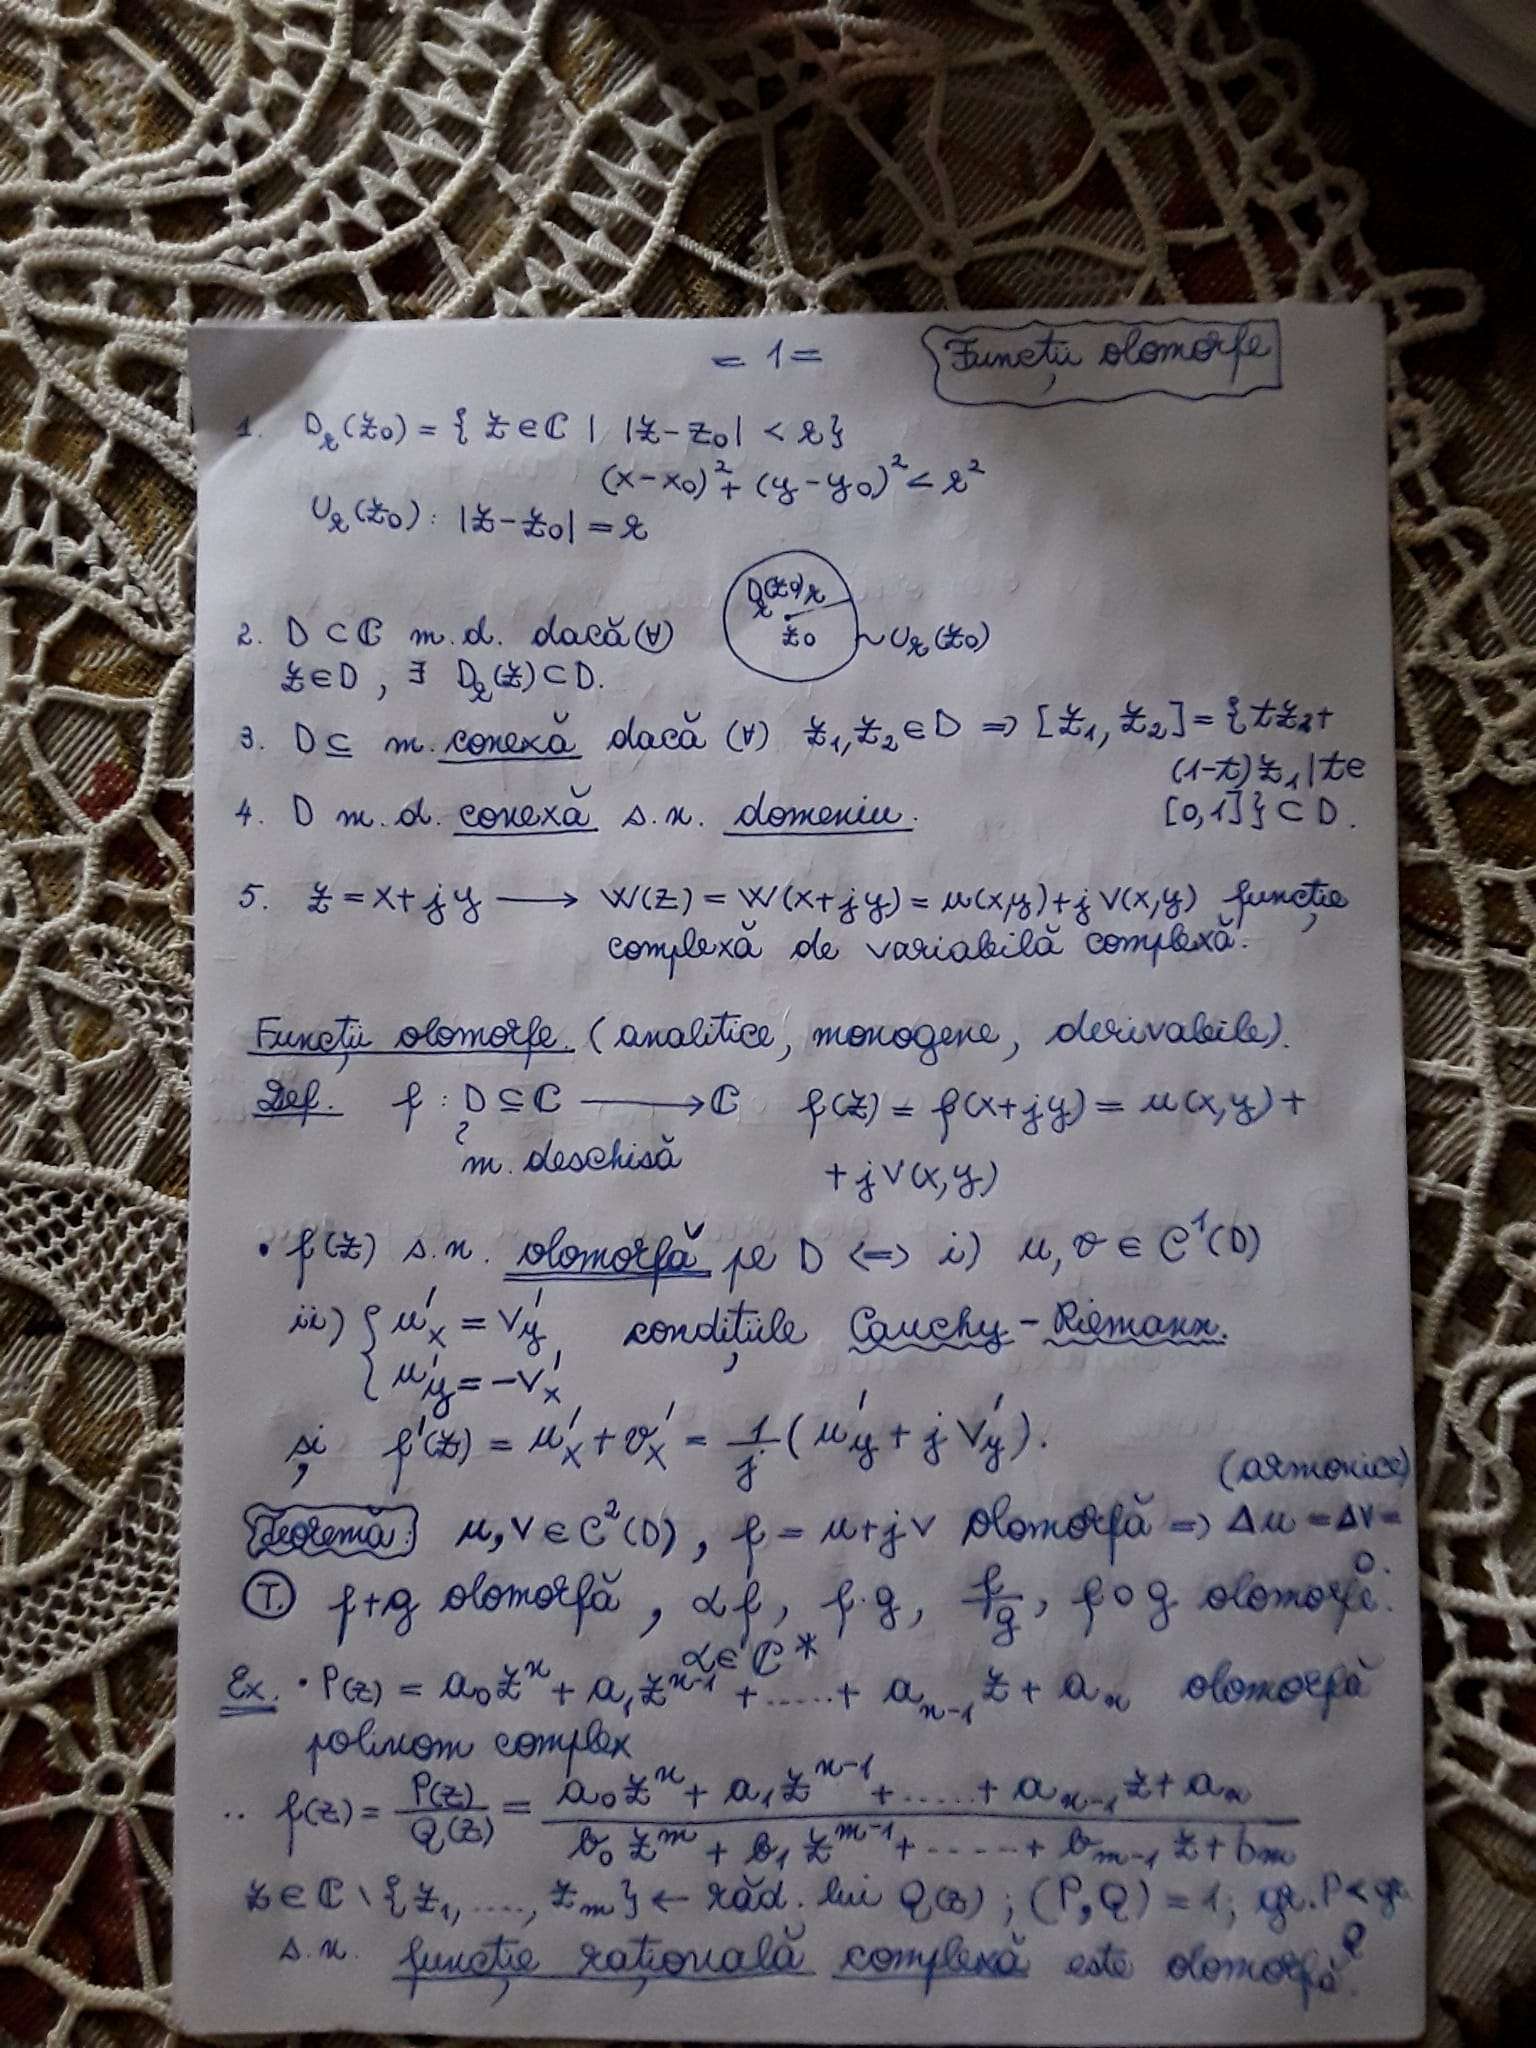 = 1 =
Funcții olomorfe
1. D_r(z_0) = { z ∈ ℂ | |z - z_0| < r}
(x - x_0)² + (y - y_0)² < r²
U_r(z_0): |z - z_0| = r
D_r(z_0) r
z_0
~U_r(z_0)
2. D ⊂ ℂ m.d. dacă (∀)
z ∈ D, ∃ D_r(z) ⊂ D.
3. D ⊆ m. conexă dacă (∀) z_1, z_2 ∈ D ⇒ [z_1, z_2] = {t z_2 +
(1-t) z_1 | t ∈
[0,1]} ⊂ D.
4. D m.d. conexă s.n. domeniu.
5. z = x + jy ⟶ W(z) = W(x + jy) = u(x,y) + j V(x,y) funcție
complexă de variabilă complexă.
Funcții olomorfe. (analitice, monogene, derivabile).
Def. f : D ⊆ ℂ ⟶ ℂ f(z) = f(x + jy) = u(x,y) +
m. deschisă
+ j V(x,y)
• f(z) s.n. olomorfă pe D ⟺ i) u, v ∈ C¹(D)
ii) { u'_x = V'_y condițiile Cauchy - Riemann.
u'_y = -V'_x
și f'(z) = u'_x + v'_x = 1/j (u'_y + j V'_y).
(armonice)
Teoremă: u, V ∈ C²(D), f = u + j V olomorfă ⇒ Δu = ΔV =
0.
(T.) f+g olomorfă, αf, f·g, f/g, f∘g olomorfe.
α ∈ ℂ*
Ex. • P(z) = a_0 z^n + a_1 z^{n-1} + ..... + a_{n-1} z + a_n olomorfă
polinom complex
.. f(z) = P(z)/Q(z) = (a_0 z^n + a_1 z^{n-1} + ..... + a_{n-1} z + a_n)/(b_0 z^m + b_1 z^{m-1} + ..... + b_{m-1} z + b_m)
z ∈ ℂ \ {z_1, ...., z_m} ← răd. lui Q(z); (P,Q) = 1; gr. P < gr.
Q
s.n. funcție rațională complexă este olomorfă.